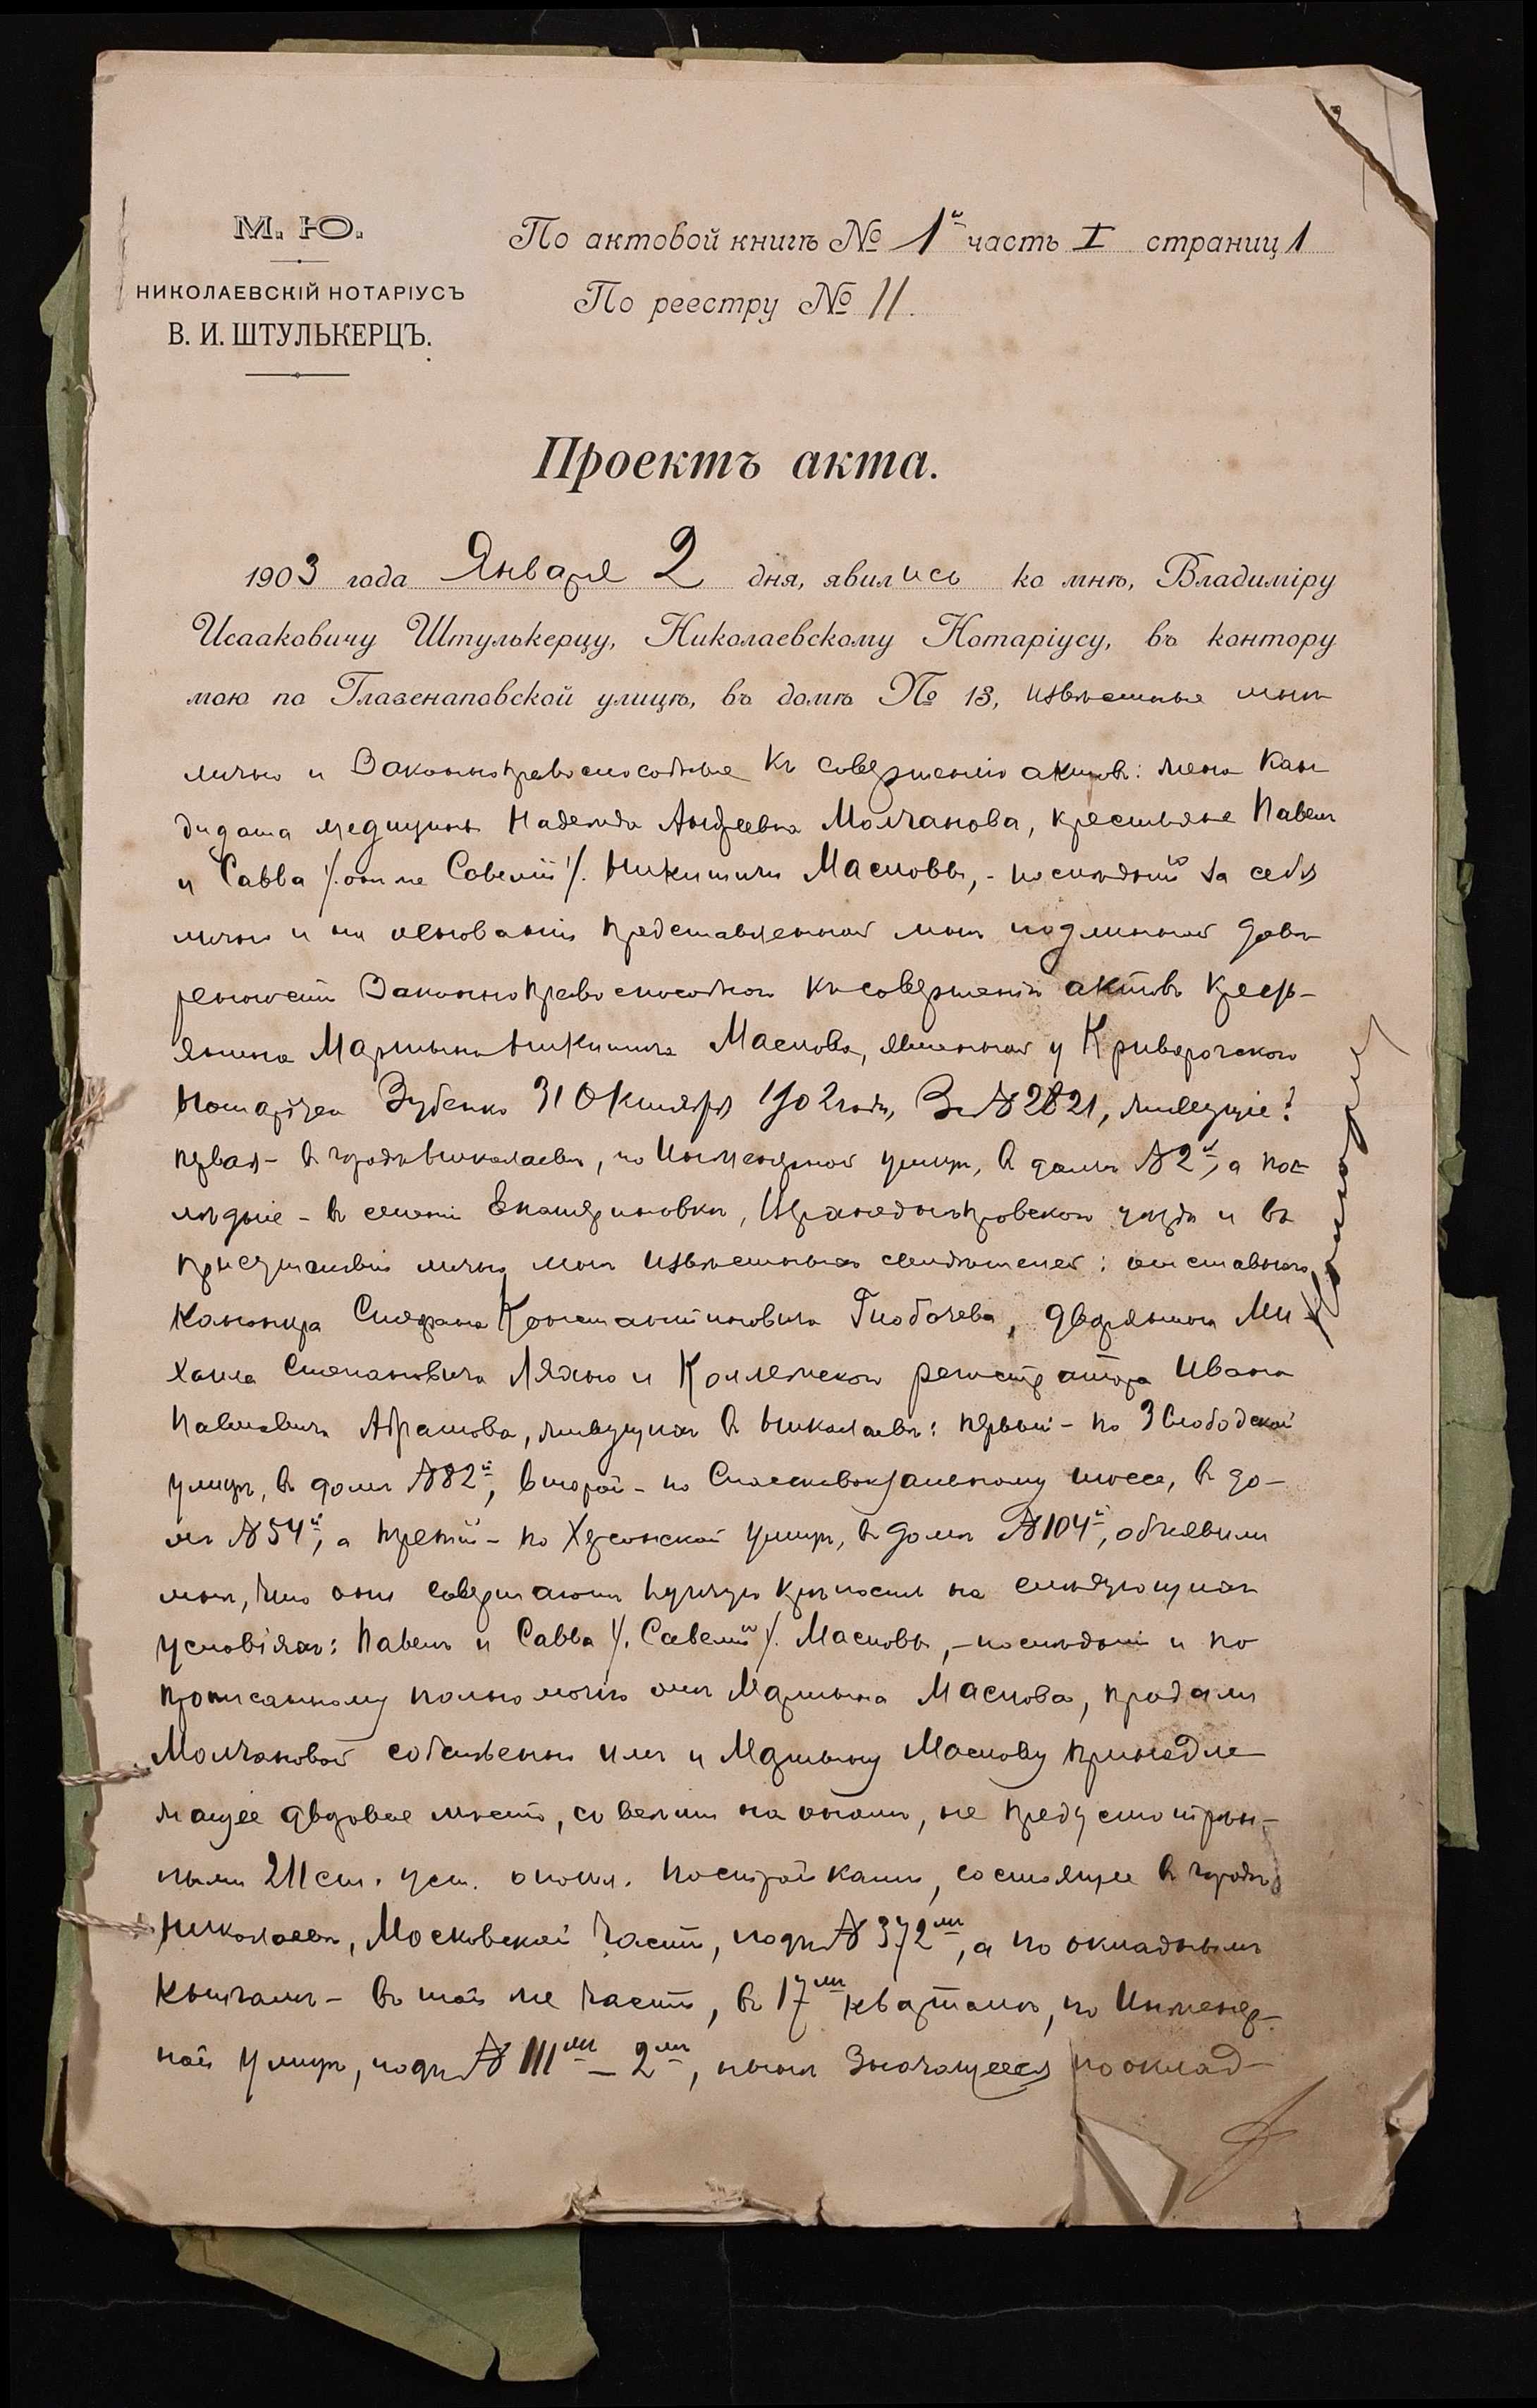 М. Ю.
НИКОЛАЕВСКІЙ НОТАРІУСЪ
В. И. ШТУЛЬКЕРЦЪ.
По актовой книгѣ № 1й часть I страниц 1
По реестру № 11.
Проектъ акта.
1903 года Января 2 дня, явились ко мнѣ, Владиміру
Исааковичу Штулькерцу, Николаевскому Нотаріусу, въ контору
мою по Глазенаповской улицѣ, въ домѣ № 13, извѣстные мнѣ
лично и законноправоспособные къ совершенію актовъ: жена кан
дидата медицины Надежда Андреевна Молчанова, крестьяне Павелъ
и Савва /. онъ же Савелій /. Никитичи Масловы, - послѣдній за себя
лично и на основаніи представленной мнѣ подлинной довѣ
ренности законноправоспособнаго къ совершенію актовъ крестъ-
янина Мартына Никитича Маслова, явленной у Криворогскаго
Нотаріуса Зубенко 31 Октября 1902 года, за № 2821, живущіе:
первая - въ городѣ Николаевѣ, по Инженерной улицѣ, въ домѣ № 2й, а пос
лѣдніе - въ селеніи Екатериновкѣ, Верхнеднѣпровскаго уѣзда и въ
присутствіи лично мнѣ извѣстныхъ свидѣтелей: отставного
канонира Константиновича Глобачева, дворянина Ми
хаила Степановича Ляхно и Коллежскаго регистратора Ивана
Павловича Абрамова, живущихъ въ Николаевѣ: первый - по 3 Слободской
улицѣ, въ домѣ № 82й, второй - по Спасскому шоссе, въ до-
мѣ № 54й, а третій - по Херсонской улицѣ, въ домѣ № 104й, объявили
мнѣ, что они совершаютъ купчую крѣпость на слѣдующихъ
условіяхъ: Павелъ и Савва /. Савелій /. Масловы, - послѣдній и по
прописанному полномочію отъ Мартына Маслова, продали
Молчановой собственно имъ и Мартыну Маслову принадле
жащее дворовое мѣсто, со всѣми на ономъ, не предусмотрѣн-
ными 211 ст. уст. о пошл. постройками, состоящее въ городѣ
Николаевѣ, Московской части, подъ № 372мъ, а по окладнымъ
книгамъ - въ той же части, въ 17мъ кварталѣ, по Инженер-
ной улицѣ, подъ № 111мъ - 2мъ, нынѣ значащееся по оклад-